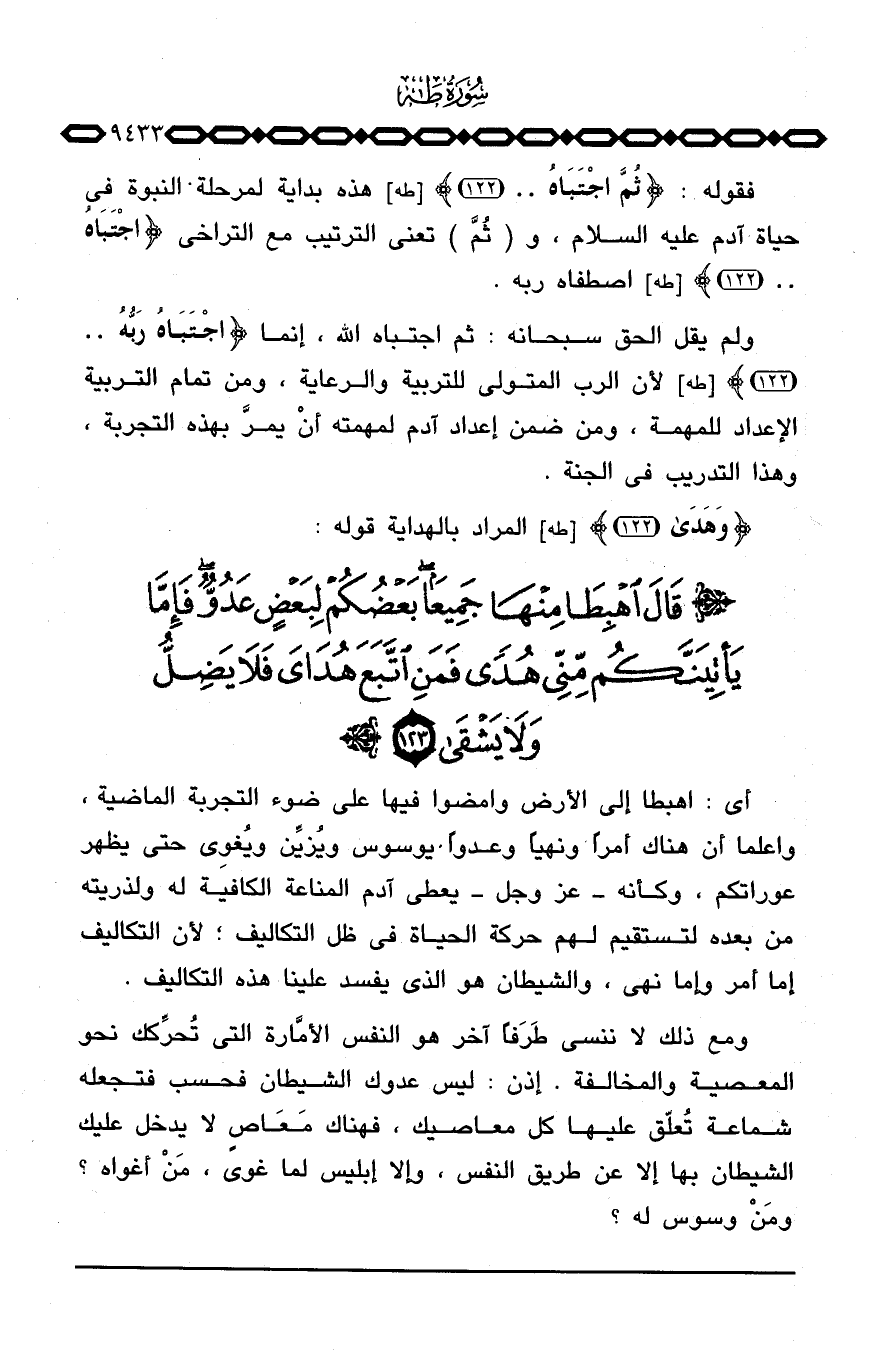 سُورَةُ طه
٩٤٣٣
فقوله : ﴿ ثُمَّ اجْتَبَاهُ .. (١٢٢) ﴾ [طه] هذه بداية لمرحلة النبوة فى
حياة آدم عليه السلام ، و ( ثُمَّ ) تعنى الترتيب مع التراخى ﴿ اجْتَبَاهُ
.. (١٢٢) ﴾ [طه] اصطفاه ربه .
ولم يقل الحق سبحانه : ثم اجتباه الله ، إنما ﴿ اجْتَبَاهُ رَبُّهُ ..
(١٢٢) ﴾ [طه] لأن الرب المتولى للتربية والرعاية ، ومن تمام التربية
الإعداد للمهمة ، ومن ضمن إعداد آدم لمهمته أنْ يمرَّ بهذه التجربة ،
وهذا التدريب فى الجنة .
﴿ وَهَدَىٰ (١٢٢) ﴾ [طه] المراد بالهداية قوله :
﴿ قَالَ ٱهْبِطَا مِنْهَا جَمِيعًۢا بَعْضُكُمْ لِبَعْضٍ عَدُوٌّ فَإِمَّا
يَأْتِيَنَّكُم مِّنِّى هُدًى فَمَنِ ٱتَّبَعَ هُدَاىَ فَلَا يَضِلُّ
وَلَا يَشْقَىٰ (١٢٣) ﴾
أى : اهبطا إلى الأرض وامضوا فيها على ضوء التجربة الماضية ،
واعلما أن هناك أمراً ونهياً وعدواً يوسوس ويُزيِّن ويُغوى حتى يظهر
عوراتكم ، وكأنه - عز وجل - يعطى آدم المناعة الكافية له ولذريته
من بعده لتستقيم لهم حركة الحياة فى ظل التكاليف ؛ لأن التكاليف
إما أمر وإما نهى ، والشيطان هو الذى يفسد علينا هذه التكاليف .
ومع ذلك لا ننسى طَرَفاً آخر هو النفس الأمَّارة التى تُحرِّكك نحو
المعصية والمخالفة . إذن : ليس عدوك الشيطان فحسب فتجعله
شماعة تُعلّق عليها كل معاصيك ، فهناك مَعَاصٍ لا يدخل عليك
الشيطان بها إلا عن طريق النفس ، وإلا إبليس لما غوى ، مَنْ أغواه ؟
ومَنْ وسوس له ؟